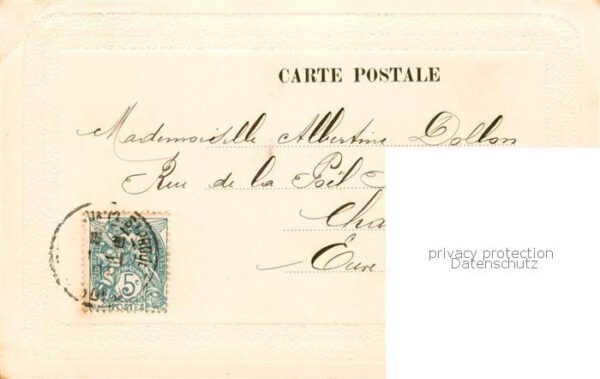 CARTE POSTALE
Mademoiselle Albertine Dollon
Rue de la Poël
Cha
Eure
privacy protection
Datenschutz
5c
POSTES